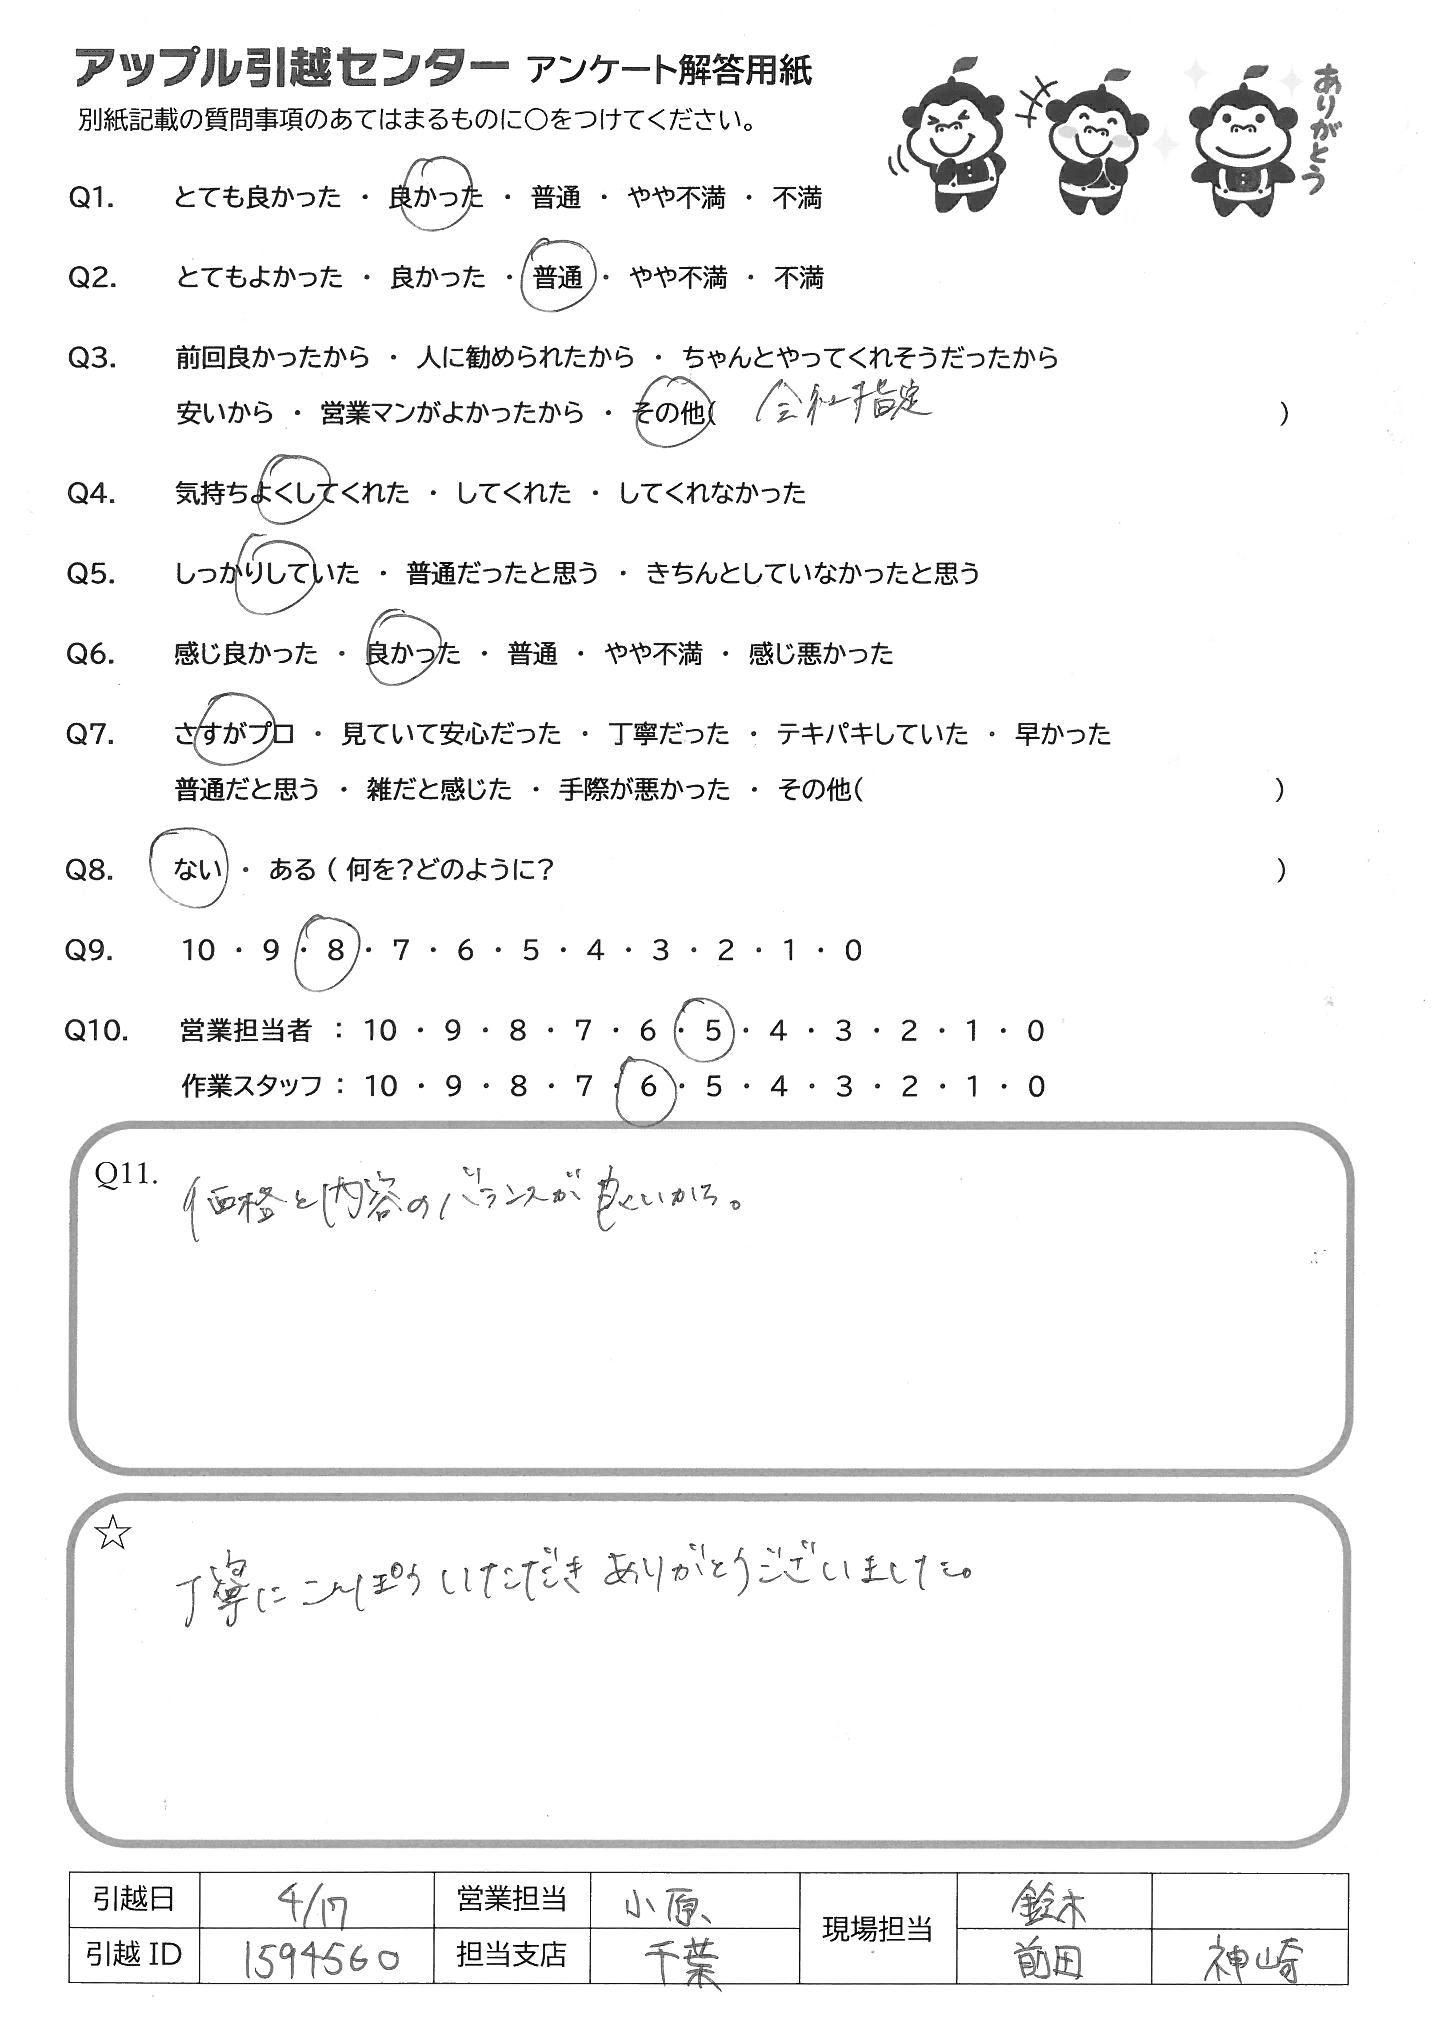 アップル引越センター アンケート解答用紙
ありがとう
別紙記載の質問事項のあてはまるものに〇をつけてください。
Q1. とても良かった ・ 良かった ・ 普通 ・ やや不満 ・ 不満
Q2. とてもよかった ・ 良かった ・ 普通 ・ やや不満 ・ 不満
Q3. 前回良かったから ・ 人に勧められたから ・ ちゃんとやってくれそうだったから
安いから ・ 営業マンがよかったから ・ その他( 会社指定 )
Q4. 気持ちよくしてくれた ・ してくれた ・ してくれなかった
Q5. しっかりしていた ・ 普通だったと思う ・ きちんとしていなかったと思う
Q6. 感じ良かった ・ 良かった ・ 普通 ・ やや不満 ・ 感じ悪かった
Q7. さすがプロ ・ 見ていて安心だった ・ 丁寧だった ・ テキパキしていた ・ 早かった
普通だと思う ・ 雑だと感じた ・ 手際が悪かった ・ その他( )
Q8. ない ・ ある ( 何を?どのように? )
Q9. 10 ・ 9 ・ 8 ・ 7 ・ 6 ・ 5 ・ 4 ・ 3 ・ 2 ・ 1 ・ 0
Q10. 営業担当者 : 10 ・ 9 ・ 8 ・ 7 ・ 6 ・ 5 ・ 4 ・ 3 ・ 2 ・ 1 ・ 0
作業スタッフ : 10 ・ 9 ・ 8 ・ 7 ・ 6 ・ 5 ・ 4 ・ 3 ・ 2 ・ 1 ・ 0
Q11. 価格と内容のバランスが良いから。
☆
丁寧にこんぽういただきありがとうございました。
引越日 4/17 営業担当 小原 現場担当 鈴木
引越 ID 1594560 担当支店 千葉 前田 神崎